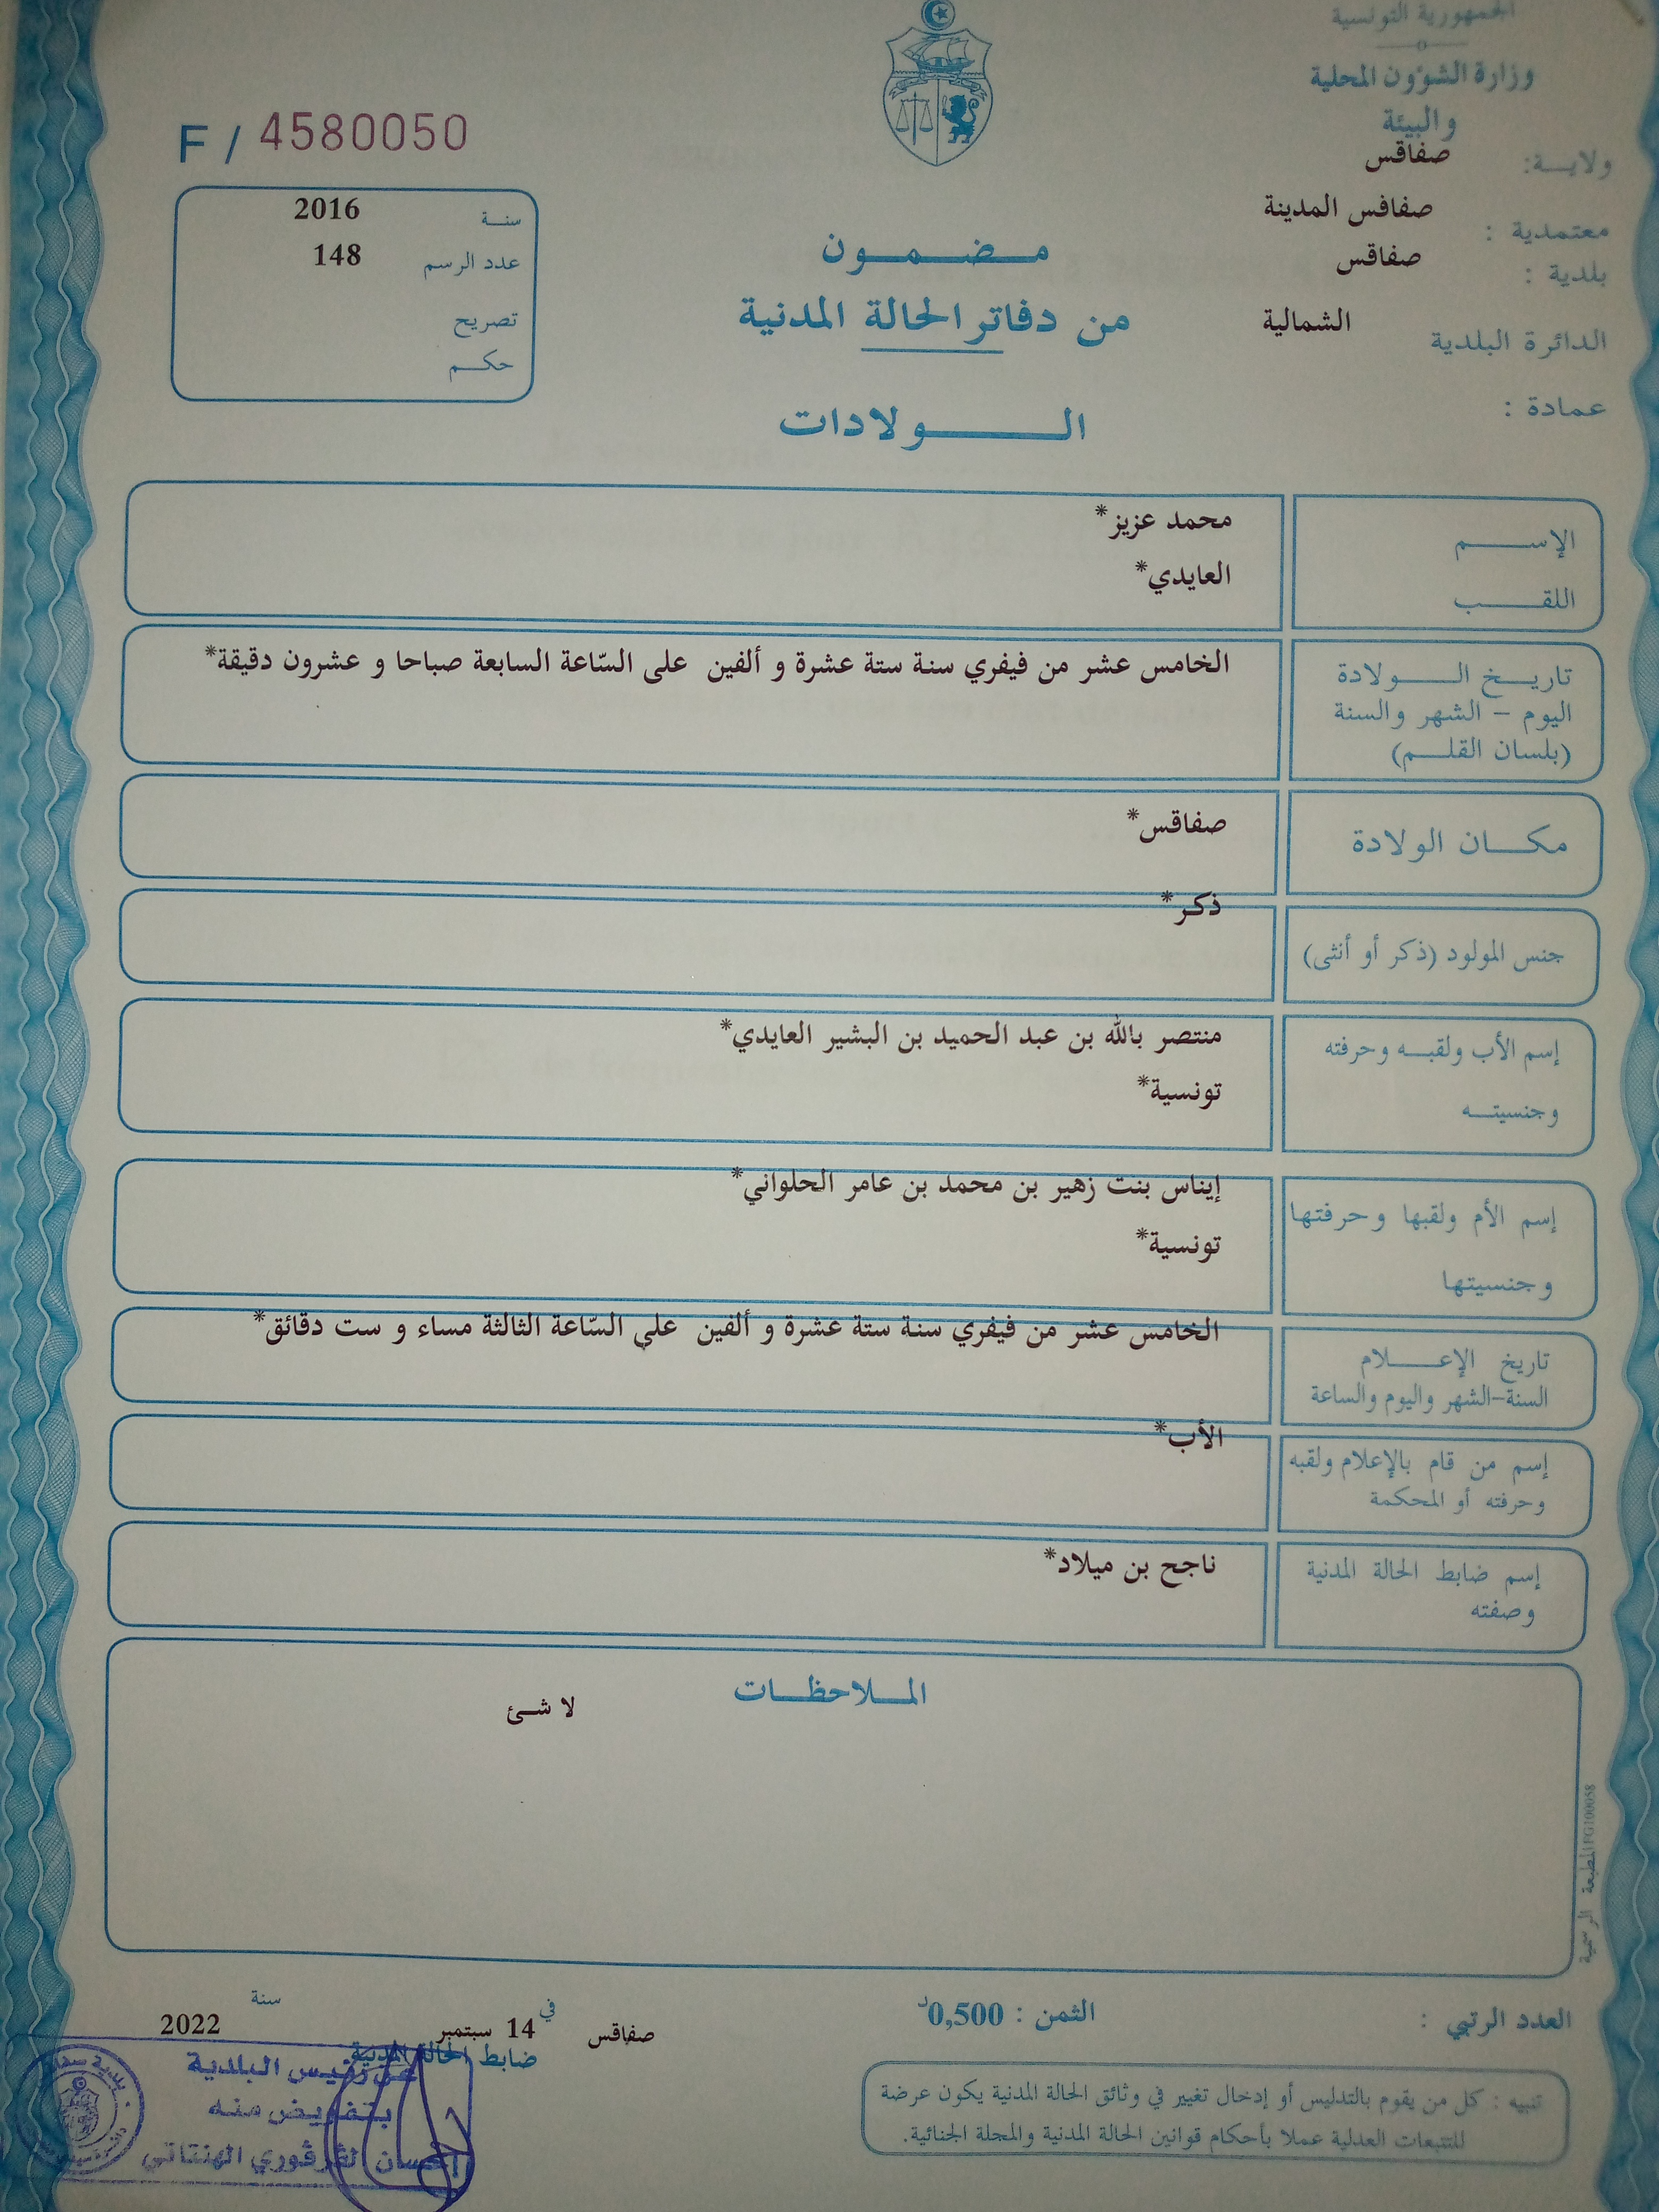 الجمهورية التونسية
وزارة الشؤون المحلية
والبيئة
ولاية: صفاقس
معتمدية : صفاقس المدينة
بلدية : صفاقس
الدائرة البلدية الشمالية
عمادة :
مضمون
من دفاتر الحالة المدنية
الولادات
F / 4580050
سنة 2016
عدد الرسم 148
تصريح
حكم
الإسم محمد عزيز*
اللقب العايدي*
تاريخ الولادة الخامس عشر من فيفري سنة ستة عشرة و ألفين على السّاعة السابعة صباحا و عشرون دقيقة*
اليوم – الشهر والسنة
(بلسان القلم)
مكان الولادة صفاقس*
جنس المولود (ذكر أو أنثى) ذكر*
إسم الأب ولقبه وحرفته منتصر بالله بن عبد الحميد بن البشير العايدي*
وجنسيته تونسية*
إسم الأم ولقبها وحرفتها إيناس بنت زهير بن محمد بن عامر الحلواني*
وجنسيتها تونسية*
تاريخ الإعلام الخامس عشر من فيفري سنة ستة عشرة و ألفين على السّاعة الثالثة مساء و ست دقائق*
السنة–الشهر واليوم والساعة
إسم من قام بالإعلام ولقبه الأب*
وحرفته أو المحكمة
إسم ضابط الحالة المدنية ناجح بن ميلاد*
وصفته
الملاحظات
لا شئ
المطبعة الرسمية FG100058
العدد الرتبي :
الثمن : 0,500د
صفاقس في 14 سبتمبر سنة 2022
ضابط الحالة المدنية
عن رئيس البلدية
بتفويض منه
الهنتاتي
تنبيه : كل من يقوم بالتدليس أو إدخال تغيير في وثائق الحالة المدنية يكون عرضة
للتتبعات العدلية عملا بأحكام قوانين الحالة المدنية والمجلة الجنائية.